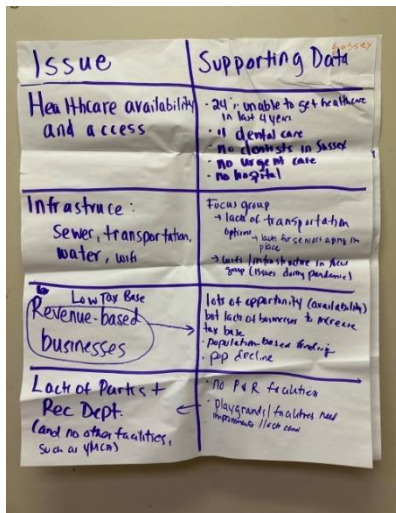 Sussex
Issue
Supporting Data
Healthcare availability
and access
· 24% unable to get healthcare
in last 4 years
· " dental care
· no dentists in Sussex
· no urgent care
· no hospital
Infrastruce:
sewer, transportation,
water, wifi
Focus group
→ lack of transportation
options
→ lack for seniors aging in
place
→ wifi / infrastructure in focus
group (issues during pandemic)
Low Tax Base
Revenue-based
businesses
lots of opportunity (availability)
but lack of businesses to increase
tax base
· population-based funding
· pop decline
Lack of Parks +
Rec Dept.
(and no other facilities,
such as YMCA)
· no P & R facilities
· playgrounds / facilities need
improvements / lack